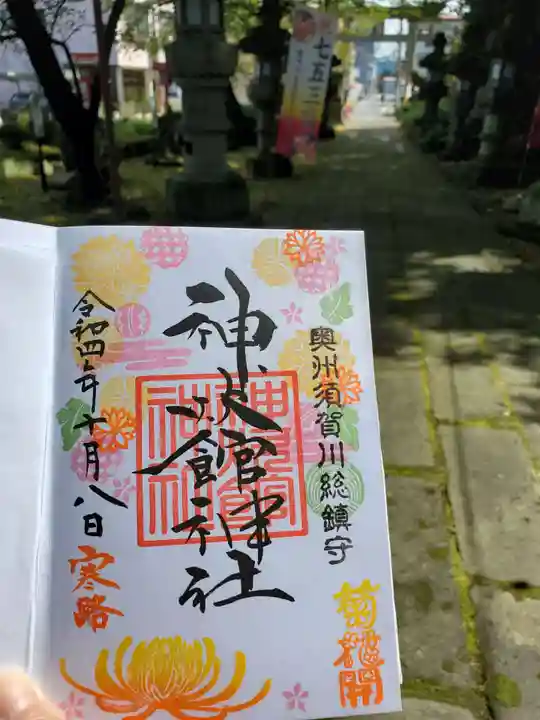 七五三
奥州須賀川総鎮守
神炊館神社
令和四年十月八日
寒露
菊花開